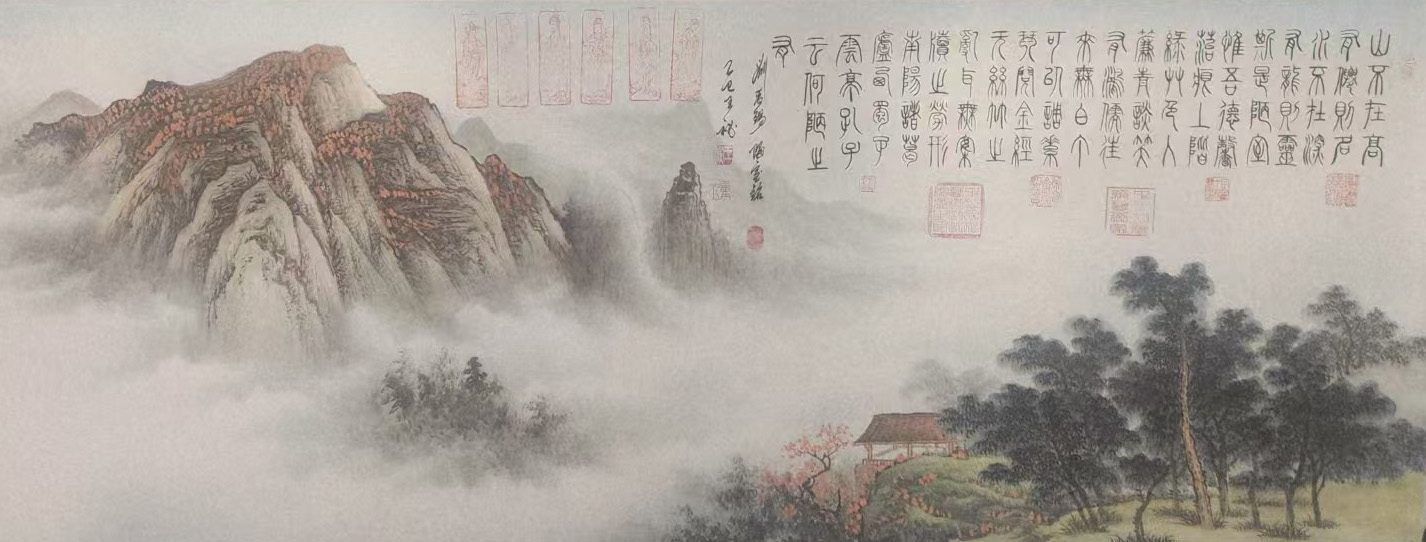 山不在高
有僊則名
水不在深
有龍則靈
斯是陋室
惟吾德馨
苔痕上階
綠艸色入
簾青談笑
有鴻儒往
來無白丁
可以調素
琴閱金經
无絲竹之
亂耳無案
牘之勞形
南陽諸葛
廬西蜀子
雲亭孔子
云何陋之
有
劉禹錫 陋室銘
乙巳